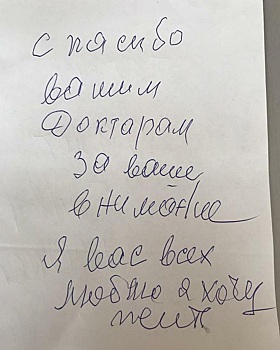 спасибо
вашим
Доктарам
За ваше
внимание
Я вас всех
люблю я хочу
жит